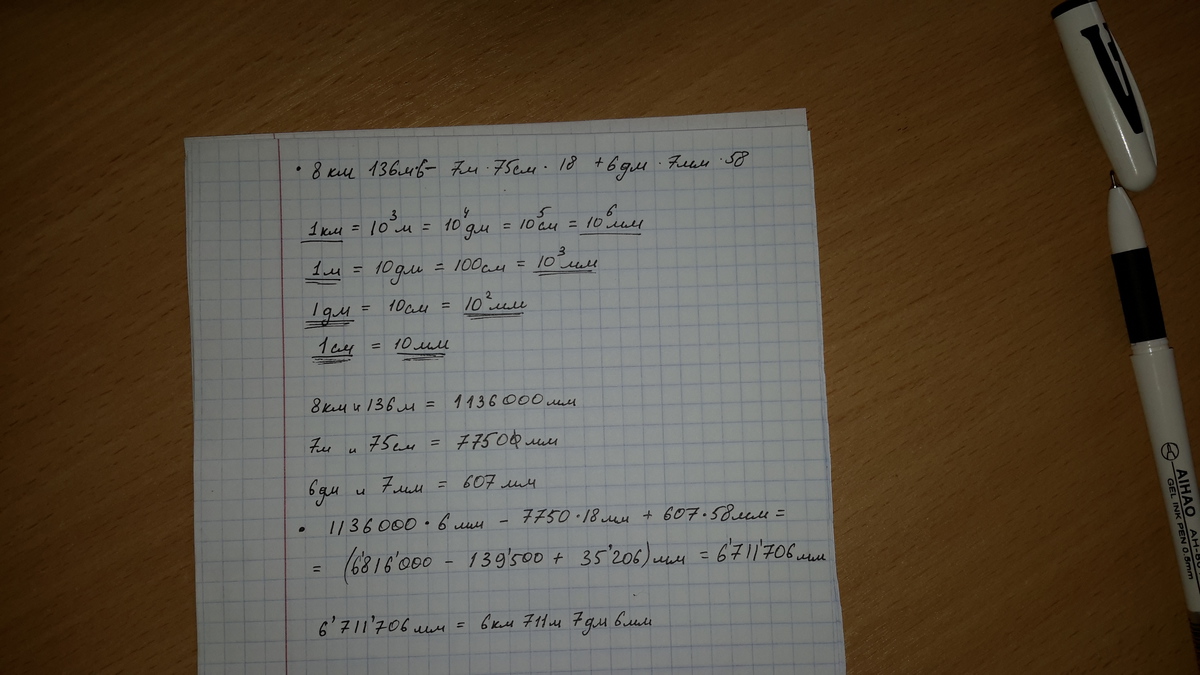 • 8км 136м·6 - 7м · 75см · 18 + 6дм · 7мм · 58
1км = 10³м = 10⁴дм = 10⁵см = 10⁶мм
1м = 10дм = 100см = 10³мм
1дм = 10см = 10²мм
1см = 10мм
8км и 136м = 1136000мм
7м и 75см = 77500мм
6дм и 7мм = 607мм
• 1136000·6мм - 7750·18мм + 607·58мм =
= (6'816'000 - 139'500 + 35'206)мм = 6'711'706мм
6'711'706мм = 6км 711м 7дм 6мм
AIHAO
GEL INK PEN 0.5mm